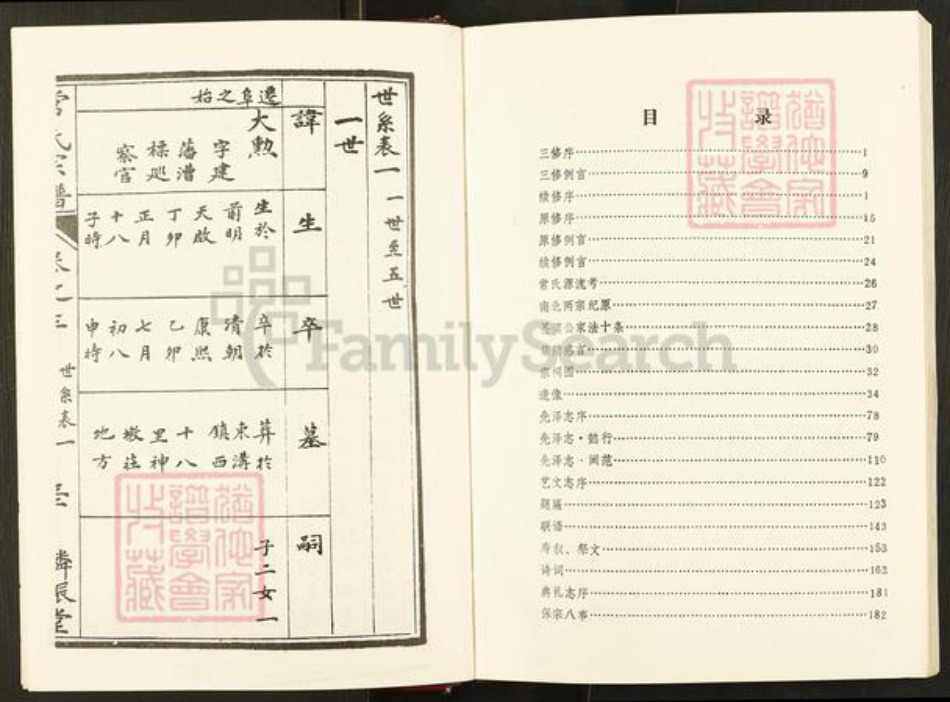 世系表一 一世至五世
一世
諱 生 卒 墓 嗣
遷阜之始
大勲
字建
藩漕
標巡
察官
生於
前明
天啟
丁卯
正月
十八
子時
卒於
清朝
康熙
乙卯
七月
初八
申時
葬於
東溝
鎮西
十八
里神
墩莊
地方
子二女一
氏宗譜
卷之三
世系表一
目 录
三修序 1
三修例言 9
续修序 1
原修序 15
原修例言 21
续修例言 24
常氏源流考 26
南北两宗纪原 27
公家法十条 28
30
宗祠图 32
遗像 34
先泽志序 78
先泽志·懿行 79
先泽志·阃范 110
艺文志序 122
题匾 123
联语 143
寿叙、祭文 153
诗词 163
典礼志序 181
保宗八事 182
FamilySearch
譜學會
收藏
譜學會
收藏